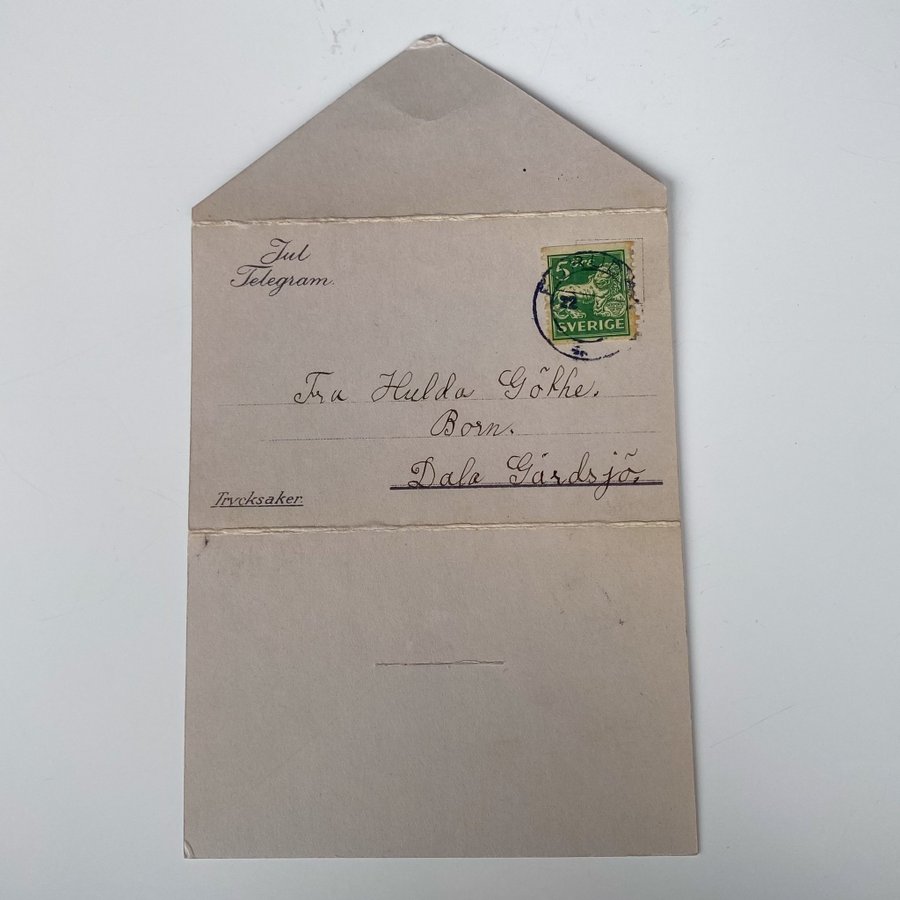 Jul
Telegram.
5 ÖRE
22
SVERIGE
Fra Hulda Göthe.
Born.
Dala Gärdsjö.
Trycksaker.